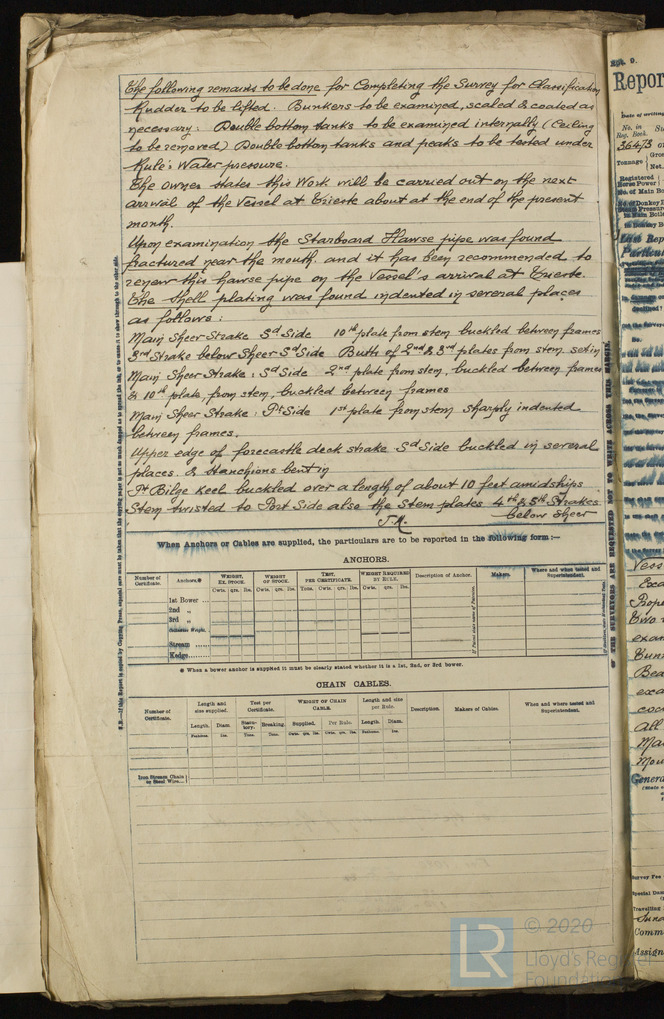 The following remains to be done for Completing the Survey for Classification
Rudder to be lifted. Bunkers to be examined, scaled & coated as
necessary: Double bottom tanks to be examined internally (Ceiling
to be removed) Double bottom tanks and peaks to be tested under
Rule's Water pressure.
The Owner states this Work will be carried out on the next
arrival of the Vessel at Trieste about at the end of the present
month.
Upon examination the Starboard Hawse pipe was found
fractured near the mouth. and it has been recommended to
renew this hawse pipe on the Vessel's arrival at Trieste.
The shell plating was found indented in several places
as follows:
Main Sheer Strake Sd Side 10th plate from stem buckled between frames
3rd Strake below Sheer Sd Side Butts of 2nd & 3rd plates from stem set in
Main Sheer Strake: Sd Side 2nd plate from stem, buckled between frames
& 10th plate, from stem, buckled between frames
Main Sheer Strake: Pt Side 1st plate from stem sharply indented
between frames.
Upper edge of forecastle deck strake Sd Side buckled in several
places. & Stanchions bent in
Pt Bilge Keel buckled over a length of about 10 feet amidships.
Stem twisted to Port Side also the Stem plates 4th & 5th Strakes
below Sheer
When Anchors or Cables are supplied, the particulars are to be reported in the following form:—
ANCHORS.
Number of Certificate. Anchors.* WEIGHT. EX. STOCK. WEIGHT OF STOCK. TEST. PER CERTIFICATE. WEIGHT REQUIRED BY RULE. Description of Anchor. Makers. Where and when tested and Superintendent.
Cwts. qrs. lbs. Cwts. qrs. lbs. Tons. Cwts. qrs. lbs. Cwts. qrs. lbs.
1st Bower ...
2nd „
3rd „
Stream
Kedge
* When a bower anchor is supplied it must be clearly stated whether it is a 1st, 2nd, or 3rd bower.
CHAIN CABLES.
Number of Certificate. Length and size supplied. Test per Certificate. WEIGHT OF CHAIN CABLE. Length and size per Rule. Description. Makers of Cables. When and where tested and Superintendent.
Length. Diam. Statutory. Breaking. Supplied. Per Rule. Length. Diam.
Iron Stream Chain or Steel Wire...
OF THE SURVEYORS ARE REQUESTED NOT TO WRITE ACROSS THIS MARGIN.
Rpt. 9.
Repor
Date of writing
No. in Reg. Book.
36473
Tonnage
Registered Horse Power
No. of Main Bo
No. of Donkey
Vess
General
Survey Fee
Special Dam
Travelling
Comm
Assign
LR
© 2020
Lloyd's Register
Foundation